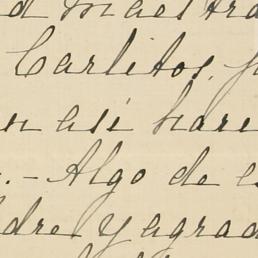 d Maestra
Carlitos,
así hare
.- Algo de
dre y agrad